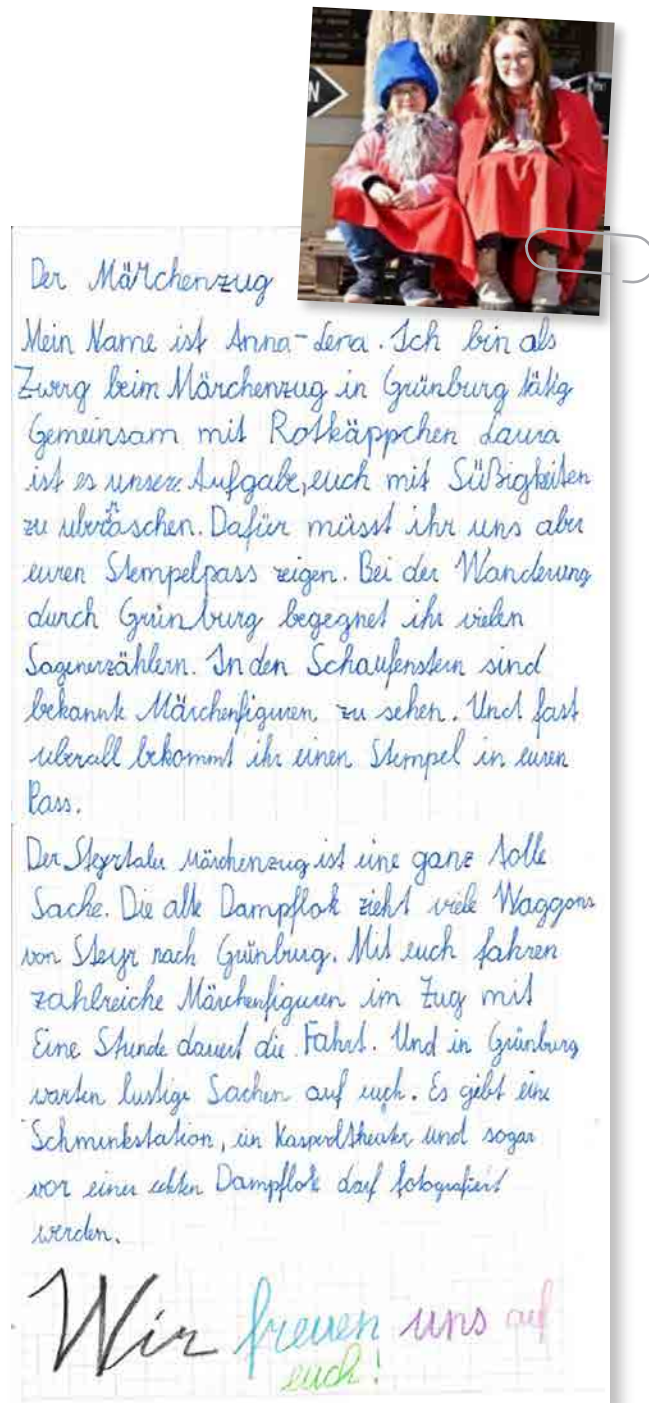 N
Der Märchenzug
Mein Name ist Anna-Lena. Ich bin als
Zwerg beim Märchenzug in Grünburg tätig
Gemeinsam mit Rotkäppchen Laura
ist es unsere Aufgabe, euch mit Süßigkeiten
zu uberraschen. Dafür müsst ihr uns aber
euren Stempelpass zeigen. Bei der Wanderung
durch Grünburg begegnet ihr vielen
Sagenerzählern. In den Schaufenstern sind
bekannte Märchenfiguren zu sehen. Und fast
uberall bekommt ihr einen Stempel in euren
Pass.
Der Steyrtaler Märchenzug ist eine ganz tolle
Sache. Die alte Dampflok zieht viele Waggons
von Steyr nach Grünburg. Mit euch fahren
zahlreiche Märchenfiguren im Zug mit
Eine Stunde dauert die Fahrt. Und in Grünburg
warten lustige Sachen auf euch. Es gibt eine
Schminkstation, ein Kasperltheater und sogar
vor einer echten Dampflok darf fotografiert
werden.
Wir freuen uns auf
euch!